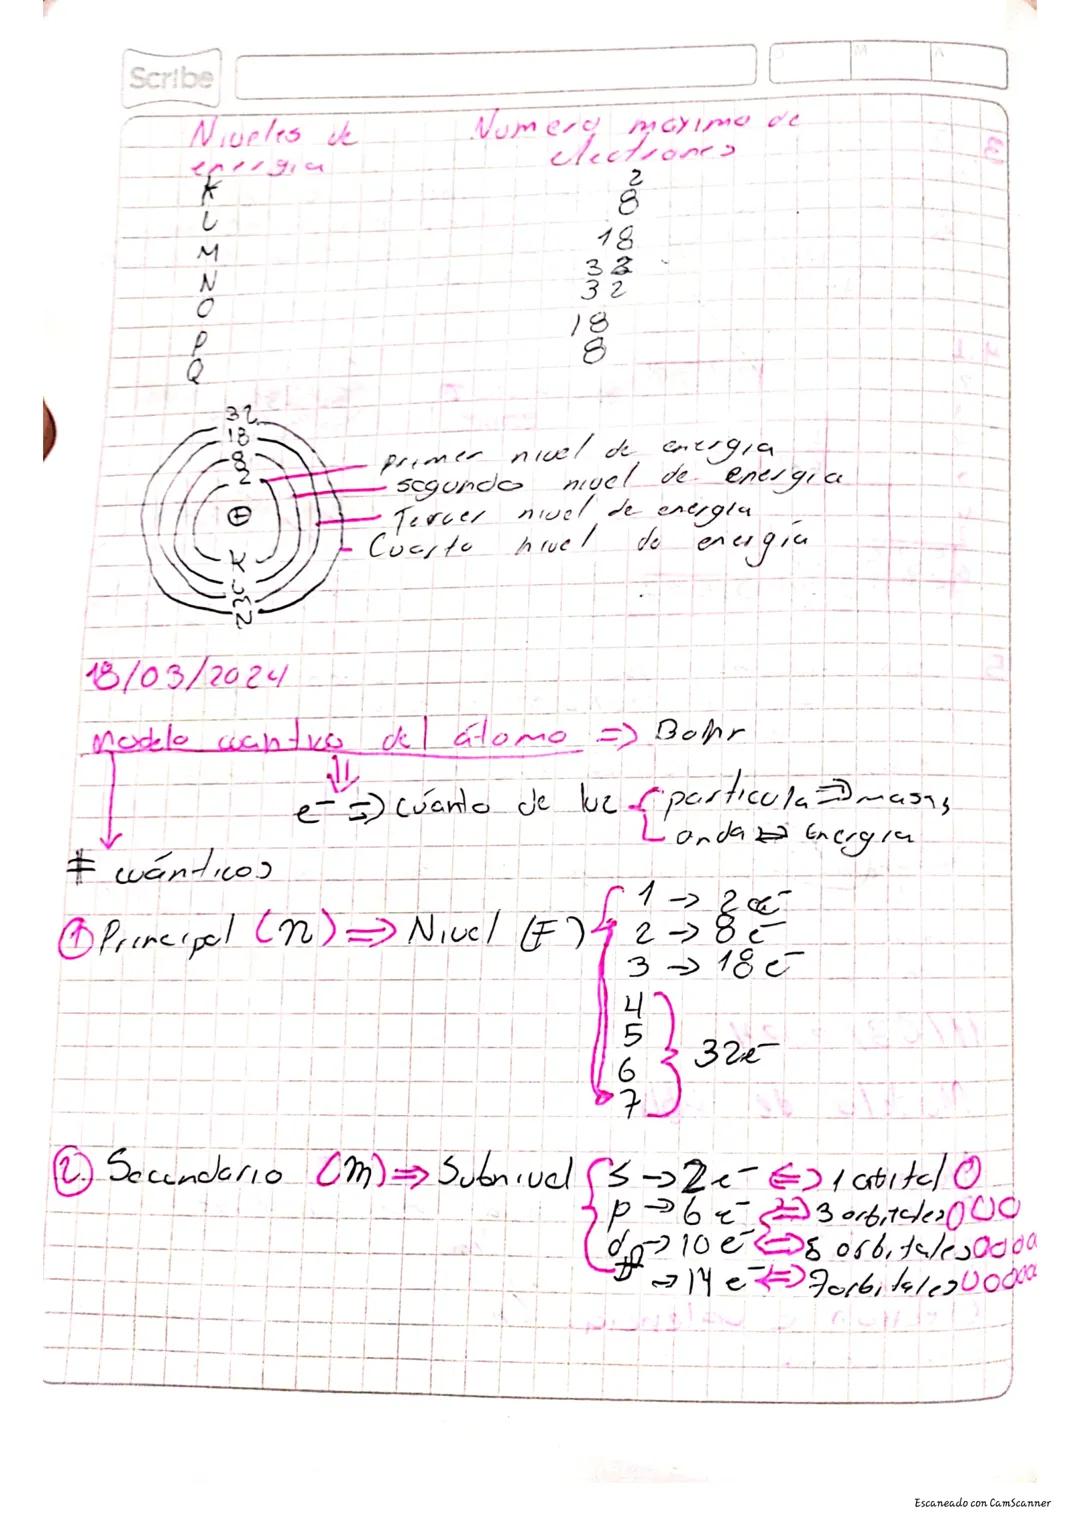 Scribe
D M A
Niveles de energia
Numero maximo de electrones
K 2
L 8
M 18
N 32
O 32
P 18
Q 8
32
18
8
2
primer nivel de energia
segundo nivel de energia
Tercer nivel de energia
Cuarto nivel de energia
K
L
M
N
18/03/2024
Modelo cuantico del átomo => Bohr
e- => cuánto de luz { particula => masa
onda => Energia
# cuánticos
① Principal (n) => Nivel (E) { 1 -> 2 e-
2 -> 8 e-
3 -> 18 e-
4
5
6
7
} 32e-
2. Secundario (m) => Subnivel { s -> 2 e- <=> 1 orbital
p -> 6 e- <=> 3 orbitales
d -> 10 e- <=> 5 orbitales
f -> 14 e- <=> 7 orbitales
Escaneado con CamScanner